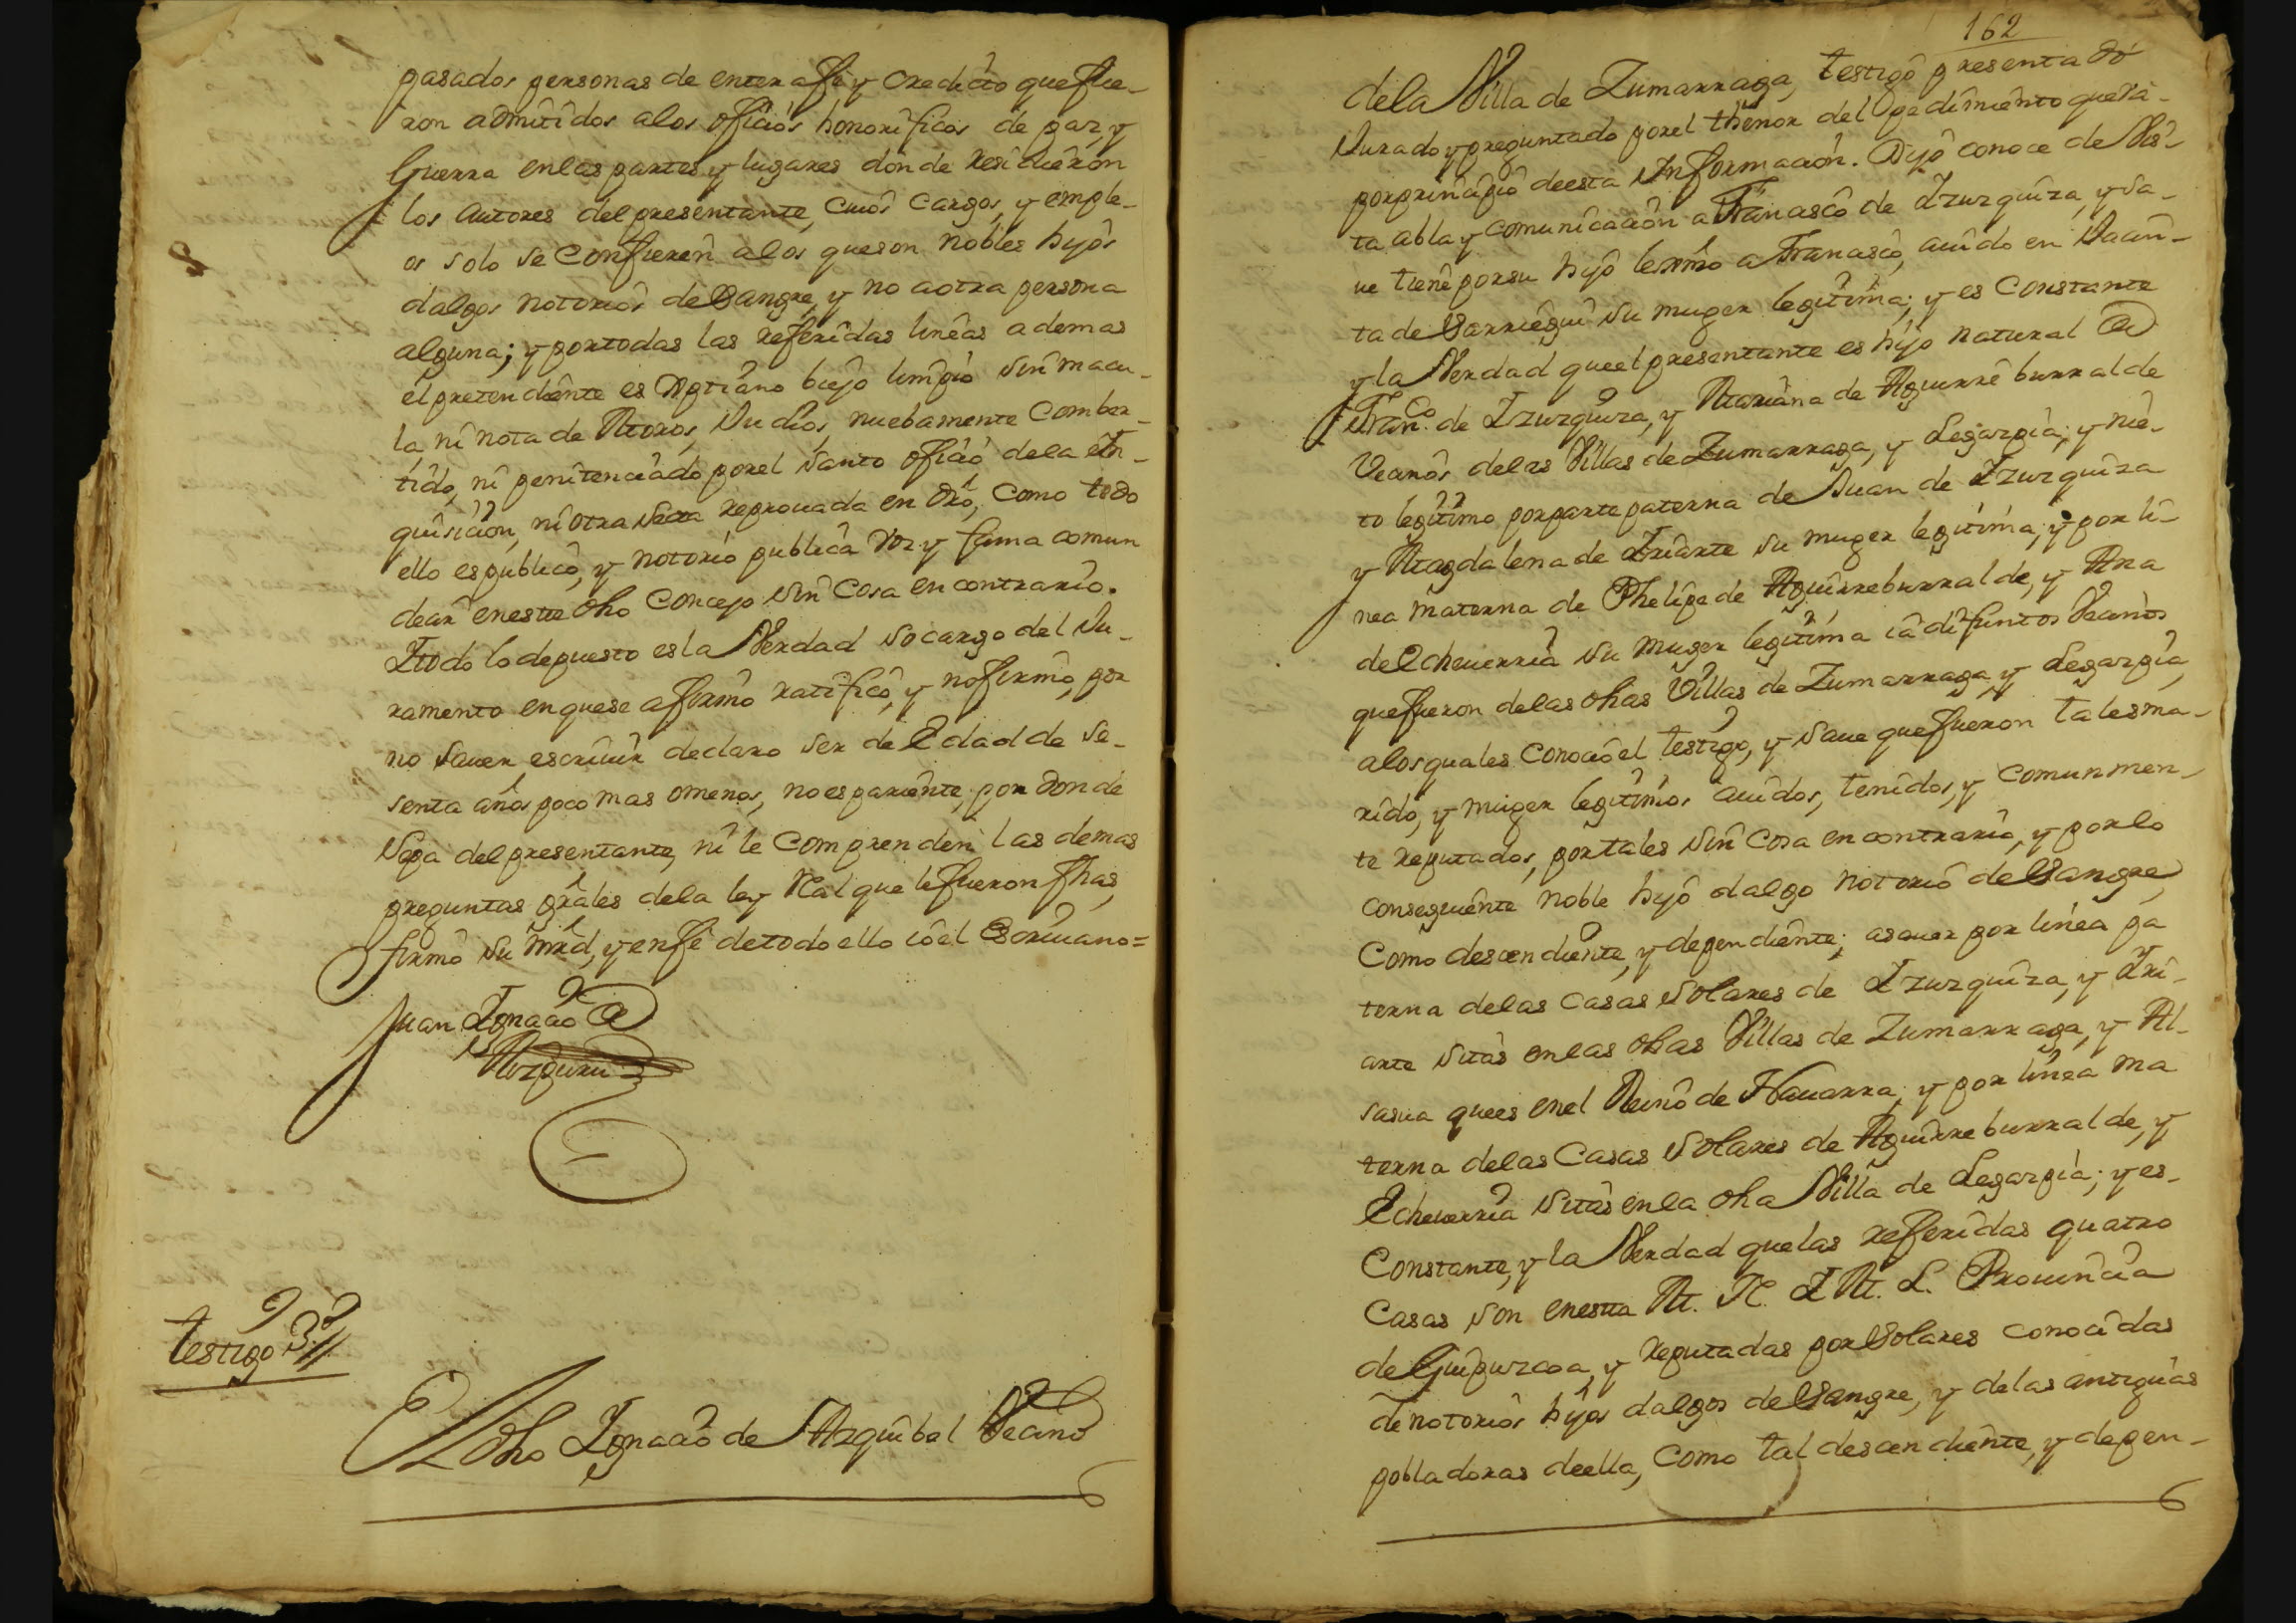 pasados personas de entera fè y credicto que fue-
ron admitidos a los oficios honorificos de paz y
Guerra en las partes y lugares donde residieron
los autores del presentante, cuios cargos, y emple-
os solo se confieren a los que son nobles hijos
dalgos notorios de Sangre, y no a otra persona
alguna; y por todas las referidas lineas ademas
el pretendiente es Xptiano biejo limpio sin macu-
la, ni nota de Moros, Judios, nuebamente comber-
tido, ni penitenciado por el Santo oficio de la In-
quisicion, ni otra Secta reprouada en dro, como todo
ello es publico, y notorio publica voz y fama comun
dear en este dho Concejo sin cosa en contrario.
I todo lo depuesto es la Verdad so cargo del Ju-
ramento en que se afirmò ratificò, y no firmò, por
no sauer escriuir declaro ser de Edad de se-
senta años poco mas o menos, no es pariente, por donde
sepa del presentante, ni le comprenden las demas
preguntas grales de la ley Ral que le fueron fhas,
firmò su mrd, y en fè de todo ello io el Escriuano=
Juan Ignacio de
testigo 3º
El dho Ignacio de Azquibel Vecino
162
de la Villa de Zumarraga, testigo presentado
Jurado y preguntado por el thenor del pedimiento que va
por principio de esta Informacion. Dijo conoce de Vis-
ta abla y comunicacion a Francisco de Izurquiza, y sa-
ue tiene por su hijo lexmo a Francisco, auido en Jacin-
ta de Sarriegui su muger legitima; y es Constante
y la Verdad que el presentante es hijo natural de
Franco. de Izurquiza, y Mariana de Aguirreburralde
Vecinos de las Villas de Zumarraga, y Legazpia; y nie-
to legitimo por parte paterna de Juan de Izurquiza
y Magdalena de Iriarte su muger legitima; y por li-
nea materna de Phelipe de Aguirreburralde, y Ana
de Echeuerria su muger legitima ià difuntos Vecinos
que fueron de las dhas Villas de Zumarraga, y Legazpia,
a los quales conocio el testigo, y saue que fueron tales ma-
rido, y muger legitimos auidos, tenidos, y comunmen-
te reputados, por tales sin cosa en contrario, y por lo
conseguiente noble hijo dalgo notorio de Sangre,
Como descendiente, y dependiente; asauer por linea pa
terna de las casas Solares de Izurquiza, y Iri-
arte sitas en las dhas Villas de Zumarraga, y Al-
sasua que es en el Reino de Nauarra; y por linea ma
terna de las Casas Solares de Aguirreburralde, y
Echeuerria sitas en la dha Villa de Legazpia; y es-
Constante, y la Verdad que las referidas quatro
Casas son en esta M. N. I M. L. Prouincia
de Guipuzcoa, y reputadas por Solares conocidas
de notorios hijos dalgos de Sangre, y de las antiguas
pobladoras de ella, como tal descendiente, y depen-